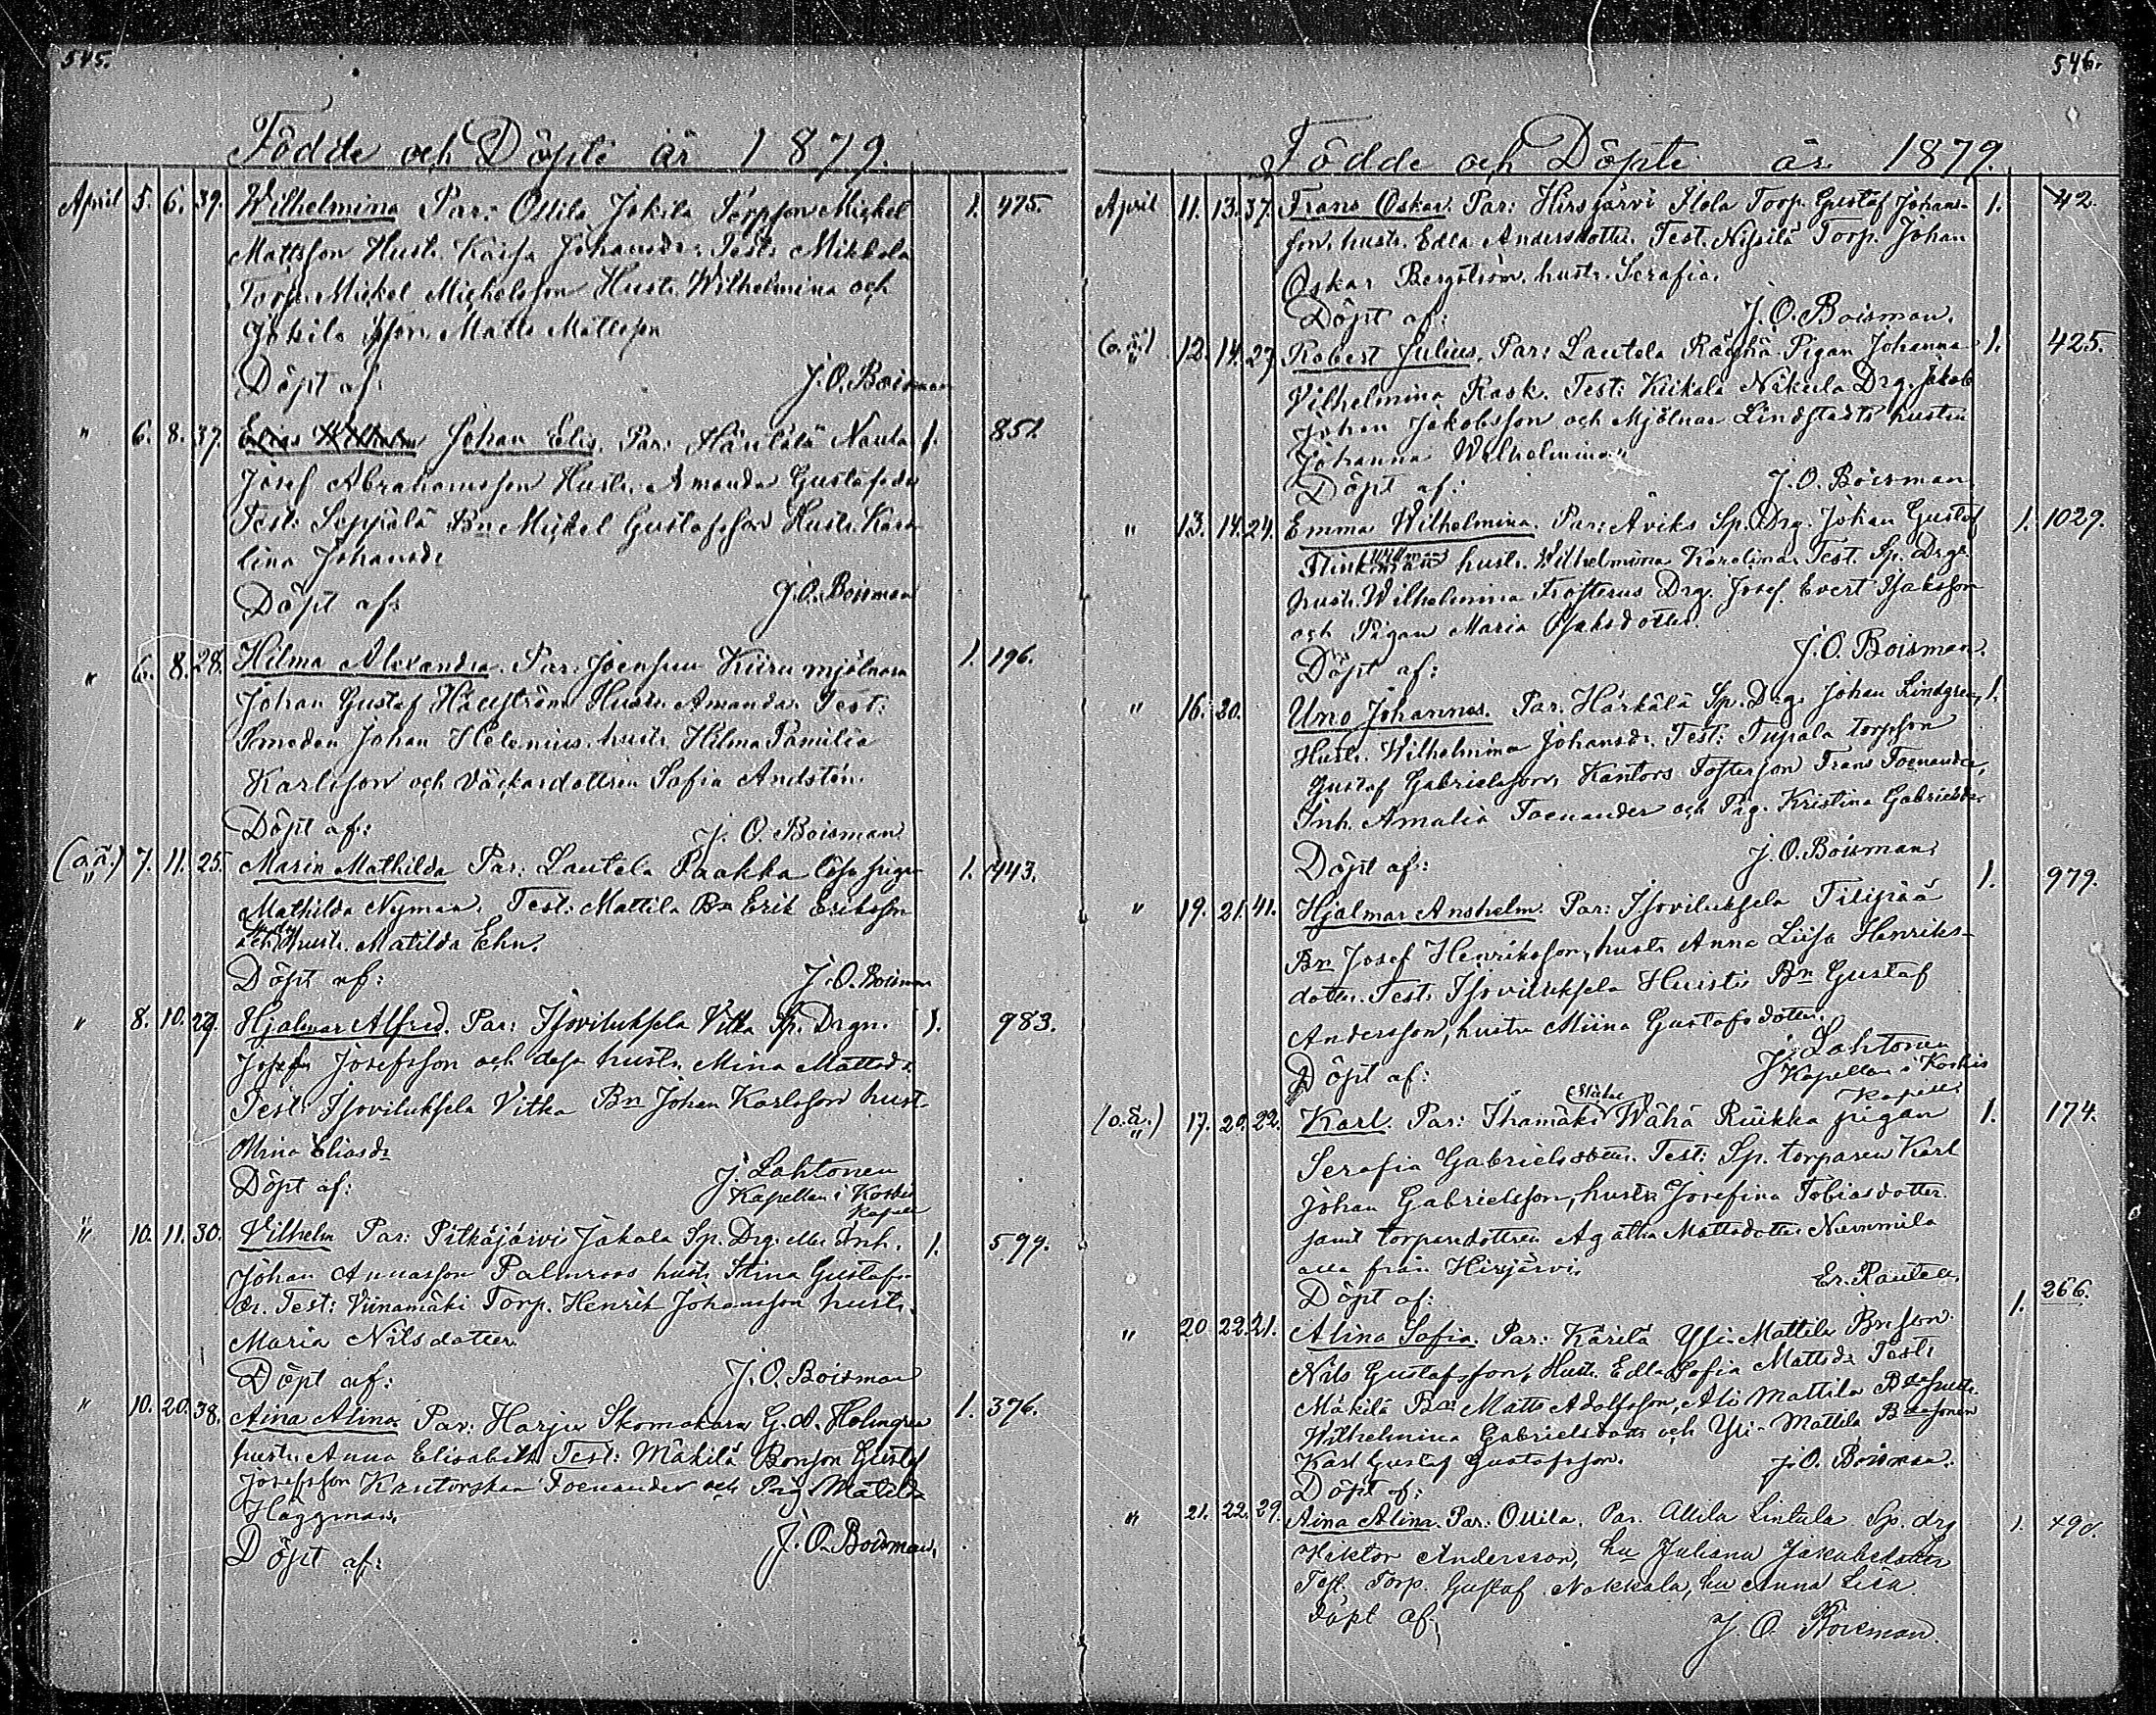 545.
Födde och Döpte år 1879.
April 5. 6. 39. Wilhelmina Par: Ollila Jokila Torpson Mickel 1. 475.
Mattsson Hustr. Kaisa Johansdr. Test: Mikkola
Torp. Mickel Mickelsson Hustr. Wilhelmina och
Jokila Matts Mattsson
Döpt af: J. O. Boisman
" 6. 8. 37. Elias Wilhelm Johan Elis. Par: Häntälä Nauta 1. 851.
Josef Abrahamsson Hustr. Amanda Gustafsdr
Test: Seppälä Bn Mickel Gustafsson Hustr. Karo-
lina Johansdr
Döpt af: J. O. Boisman
" 6. 8. 28. Hilma Alexandra. Par: Joensuu Kiiru mjölnaren 1. 196.
Johan Gustaf Hustr. Amanda. Test:
Smeden Johan Helenius, hustr. Hilma
Karlsson och Sofia Andstén.
Döpt af: J. O. Boisman
(o.ä.) " 7. 11. 25. Maria Mathilda Par: Lautela Paakka lösa pigan 1. 443.
Mathilda Nyman. Test: Mattila Bn Erik Eriksson
och hustr. Matilda Ehn.
Döpt af: J. O. Boisman
" 8. 10. 29. Hjalmar Alfred. Par: Isoviluksela Vitka Sp. Drgn. 1. 983.
Josef Josefsson och dess hustr. Mina Mattsdr.
Test: Isoviluksela Vitka Bn Johan Karlsson hust.
Mina Eliasdr
Döpt af: J. Lahtonen
Kapellan i Koskis
Kapell
" 10. 11. 30. Vilhelm Par: Pitkäjärvi Jakala Sp. Drg. Inh. 1. 599.
Johan Annasson Palmroos hustr. Stina Gustafs-
dr. Test: Viinamäki Torp. Henrik Johansson hustr.
Maria Nilsdotter
Döpt af: J. O. Boisman
" 10. 20. 38. Aina Alina. Par: Harju Skomakaren G. A. Holmgren 1. 376.
hustr. Anna Elisabeth Test: Mäkilä Bonson Gustaf
Josefsson Kantorskan Foenander och Pig. Matilda
Häggman.
Döpt af: J. O. Boisman.
546.
Födde och Döpte år 1879.
April 11. 13. 37. Frans Oskar. Par: Hirsjärvi Ilola Torp. Gustaf Johans- 1. 42.
son, hustr. Edla Andersdotter. Test. Nissilä Torp. Johan
Oskar Bergström, hustr. Serafia.
Döpt af: J. O. Boisman.
(o.ä.) " 12. 14. 27. Robert Julius. Par: Lautela Pigan Johanna 1. 425.
Vilhelmina Rask. Test: Kiikala Nikula Drg. Jakob
Johan Jakobsson och Mjölnar Lindstedts hustru
Johanna Wilhelmina.
Döpt af: J. O. Boisman
" 13. 14. 24. Emma Wilhelmina. Par: Åviks Sp. Drg. Johan Gustaf 1. 1029.
Flinkman hustr. Wilhelmina Karolina. Test. Sp. Drgs.
hustr. Wilhelmina Frosterus Drg. Josef Evert Isaksson
och Pigan Maria Isaksdotter.
Döpt af: J. O. Boisman.
" 16. 20. Uno Johannes. Par. Härkälä Sp. Drg. Johan Lindgren, 1.
Hustr. Wilhelmina Johansdr. Test: Tupala torpson
Gustaf Gabrielsson, Kantors Fosterson Frans Foenander,
Inh. Amalia Foenander och Pig. Kristina Gabrielsdr.
Döpt af: J. O. Boisman.
" 19. 21. 41. Hjalmar Anshelm. Par: Isoviluksela Filippää 1. 979.
Bn Josef Henriksson, hustr. Anna Liisa Henriks-
dotter. Test: Isoviluksela Huisti Bn Gustaf
Andersson, hustru Miina Gustafsdotter.
Döpt af: J. Lahtonen
Kapellan i Koskis
Kapell
(o.ä.) " 17. 20. 22. Karl. Par: Ihamäki Wähä Ruikka pigan 1. 174.
Serafia Gabrielsdotter. Test: Sp. torparen Karl
Johan Gabrielsson, hustr. Josefina Tobiasdotter
samt torparedottren Agatha Mattsdotter Nummila
alla från Hirsjärvi.
Döpt af: Er. Rautell.
" 20. 22. 21. Alina Sofia. Par: Kärilä Yli-Mattila Bn son 1. 266.
Nils Gustafsson, Hustr. Edla Sofia Mattsdr Test:
Mäkilä Bn Matts Adolfsson, Ali Mattila Bns hustr.
Wilhelmina Gabrielsdotter och Yli-Mattila Bnsonen
Karl Gustaf Gustafsson. J. O. Boisman.
Döpt af:
" 21. 22. 29. Aina Alina. Par: Ollila. Par. Ollila Lintula Sp. drg 1. 490.
Hiktor Andersson, hu Juliana Jakobsdotter
Test. Torp. Gustaf Nokkala, hu Anna Lisa
Döpt af: J. O. Boisman.